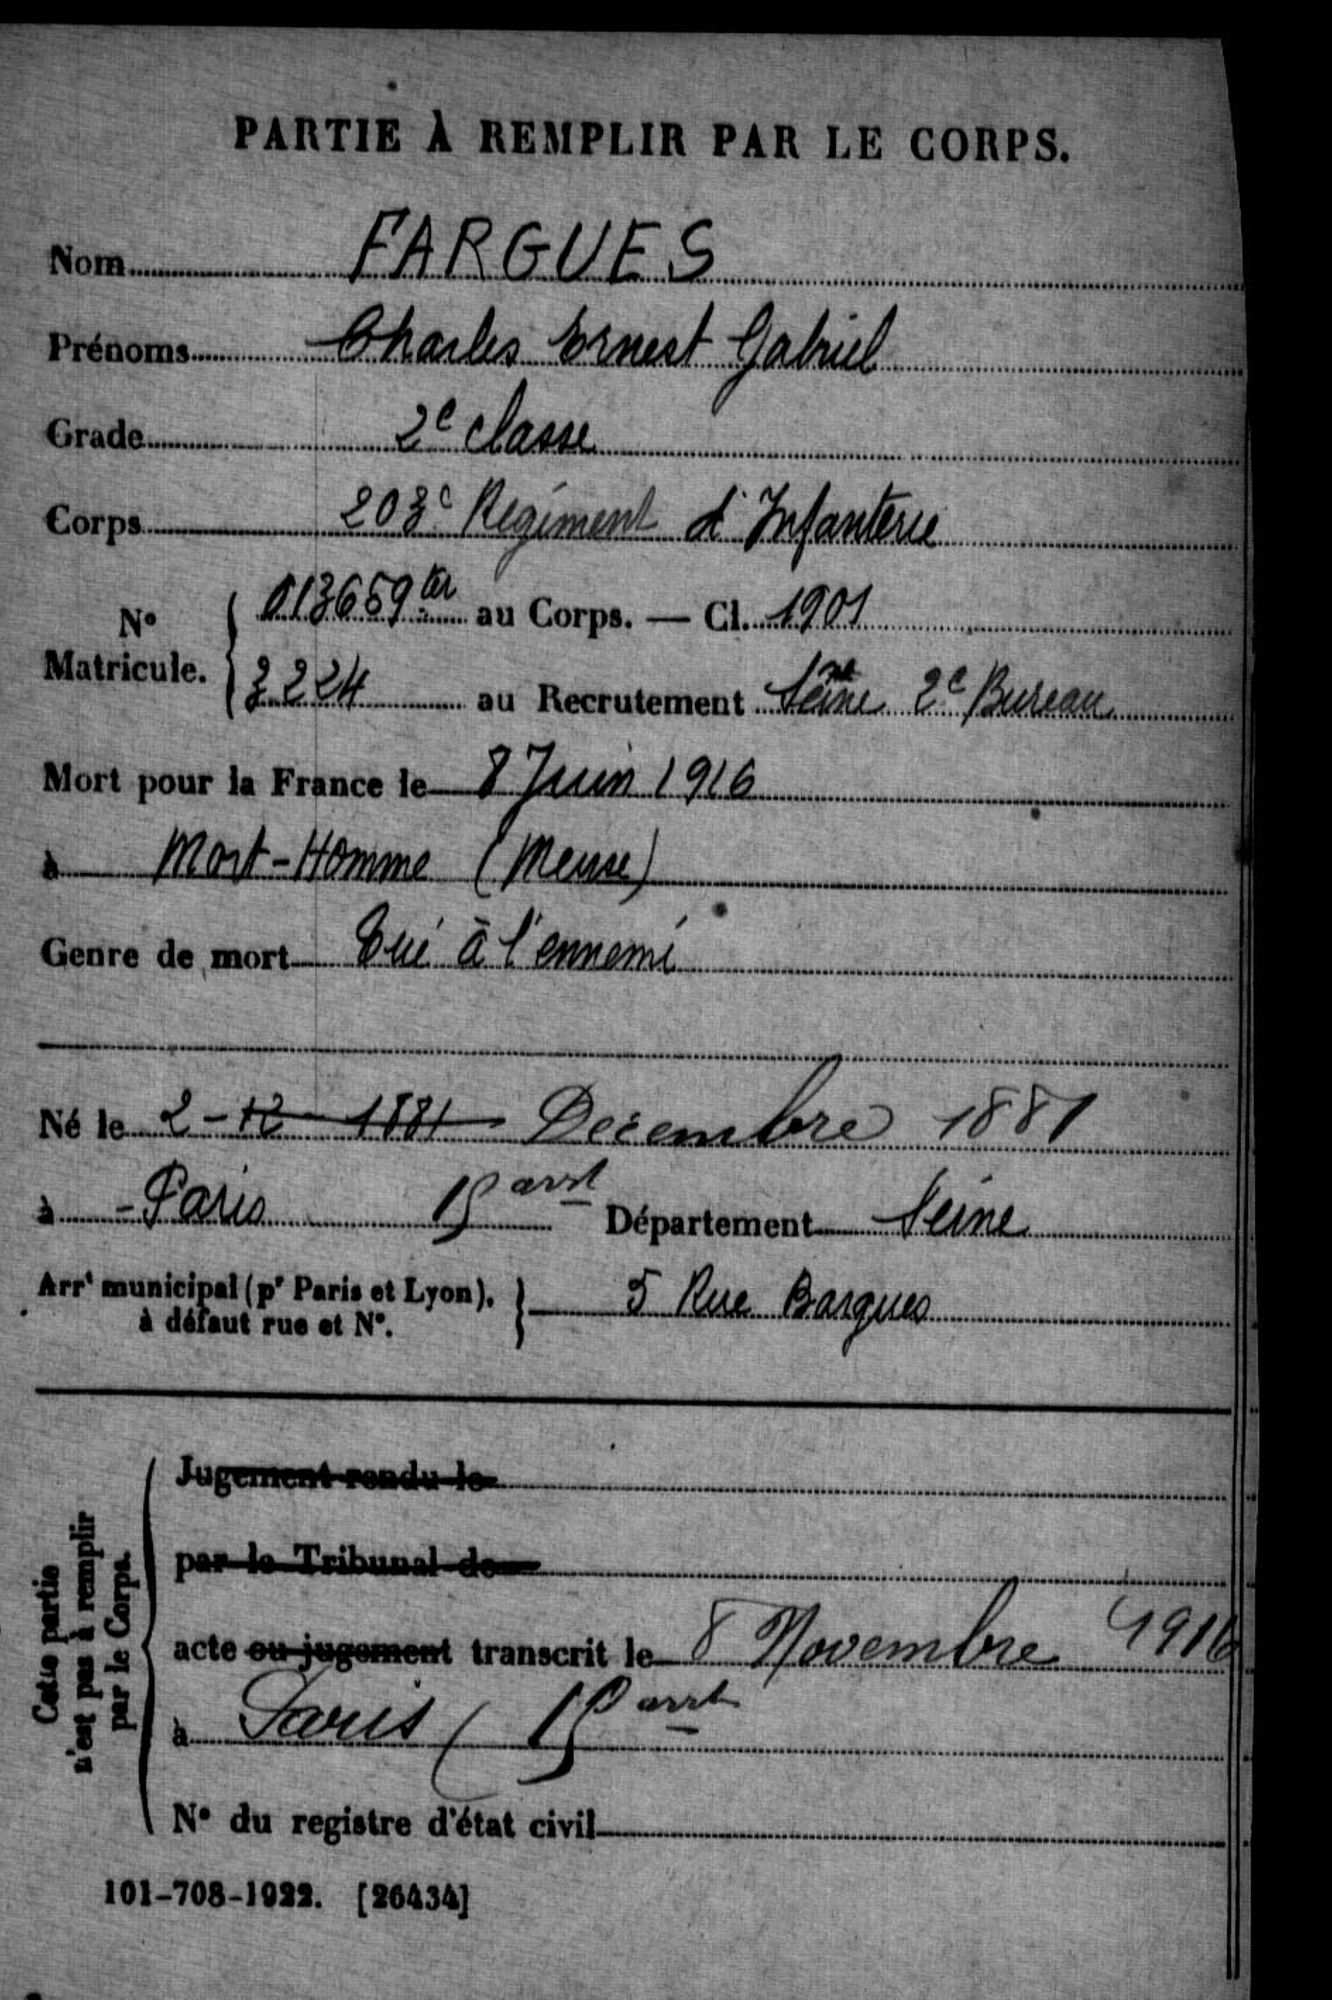 PARTIE À REMPLIR PAR LE CORPS.
Nom FARGUES
Prénoms Charles Ernest Gabriel
Grade 2e classe
Corps 203e Régiment d'Infanterie
No Matricule. { 013659 ter au Corps. — Cl. 1901
3224 au Recrutement Seine 2e Bureau
Mort pour la France le 8 Juin 1916
à Mort-Homme (Meuse)
Genre de mort Tué à l'ennemi
Né le 2 - 12 - 1881 Décembre 1881
à - Paris 15 arrt Département Seine
Arrt municipal (pr Paris et Lyon), à défaut rue et No. } 5 Rue Bargues
Cette partie n'est pas à remplir par le Corps.
Jugement rendu le
par le Tribunal de
acte ou jugement transcrit le 8 Novembre 1916
à Paris ( 15 arrt
No du registre d'état civil
101-708-1922. [26434]